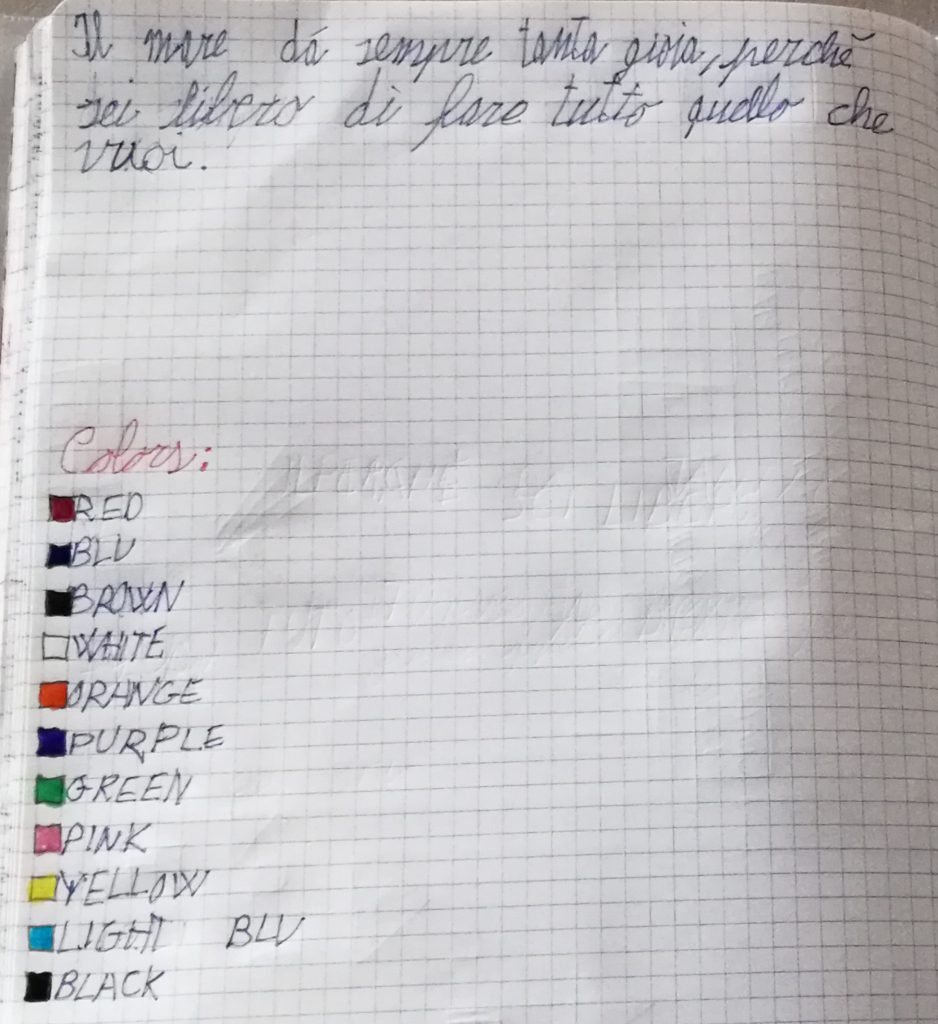 Il mare dá sempre tanta gioia, perchè
sei libero di fare tutto quello che
vuoi.
Colors:
RED
BLU
BROWN
WHITE
ORANGE
PURPLE
GREEN
PINK
YELLOW
LIGHT BLU
BLACK